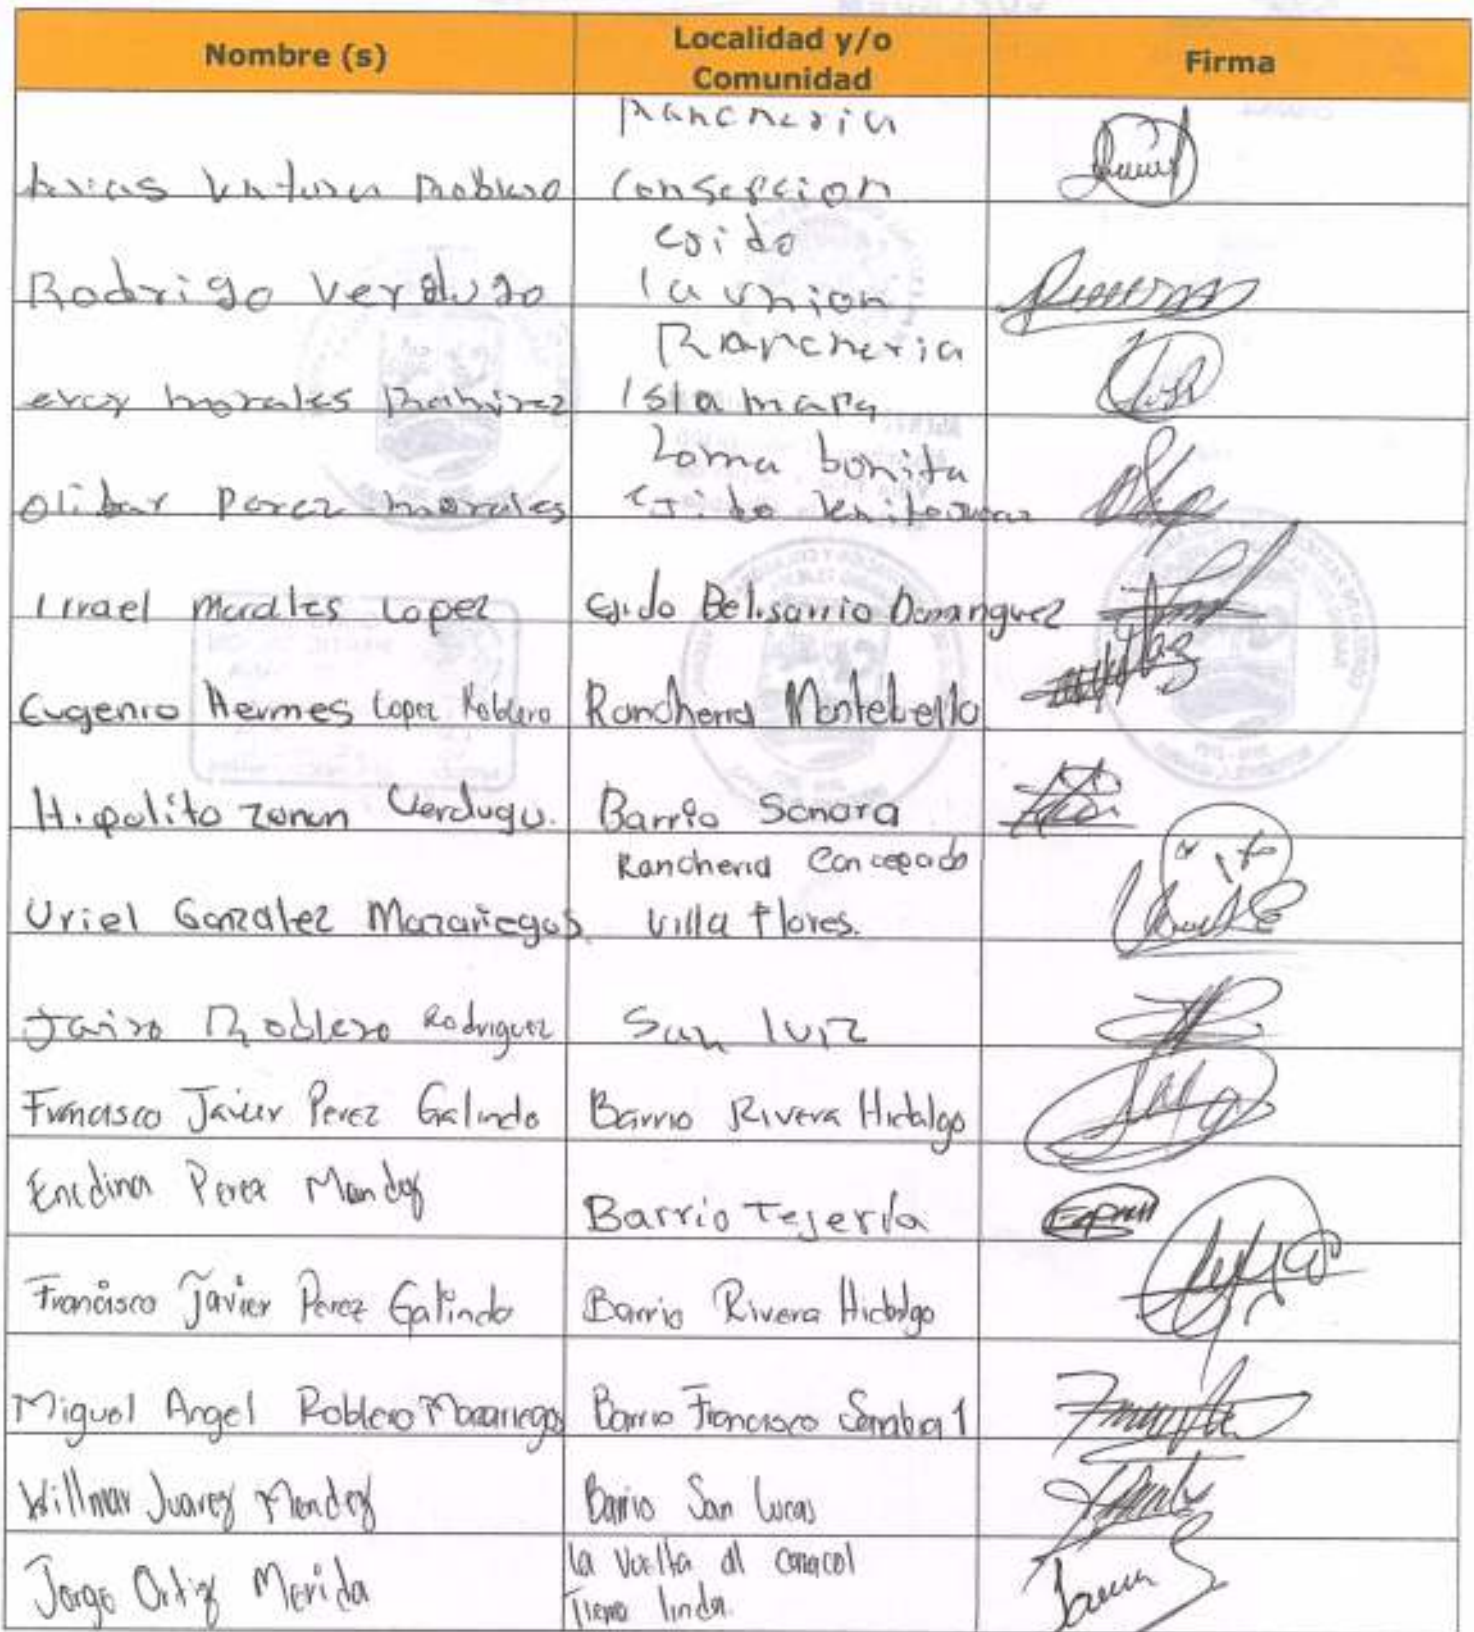 Nombre (s) Localidad y/o Comunidad Firma
Rancheria
Ventura Roblero Consepcion
Rodrigo Verdugo Esido la union
Rancheria
ever morales Ramirez Isla mapa
Loma bonita
olibar Perez morales Ejido
Israel Morales Lopez Ejido Belisarrio Domanguez
Eugenio Hermes Lopez Roblero Rancheria Montebello
Hipolito Zonun Verdugo. Barrio Sonora
Rancheria
Uriel Gonzalez Mazariegos. Villa flores.
Jairo Roblero Rodriguez San luiz
Francisco Javier Perez Galindo Barrio Rivera Hidalgo
Enedina Perez Mendez Barrio Tejería
Francisco Javier Perez Galindo Barrio Rivera Hidalgo
Miguel Angel Roblero Mazariegos Barrio Francisco Sarabia 1
Willmar Juarez Mendez Barrio San Lucas
Jorge Ortiz Merida la Vuelta al caracol
Tierra linda.